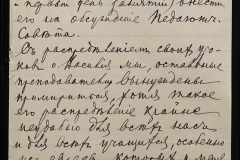 первый день занятий, внести
его на обсуждение Педагогич.
Совѣта.
Съ распредѣленіем своих уро-
ков о. Василія мы, остальные
преподаватели вынуждены
примириться, хотя такое
его распредѣленіе крайне
неудобно для всѣх насъ и
для всѣх учащихся, особенно